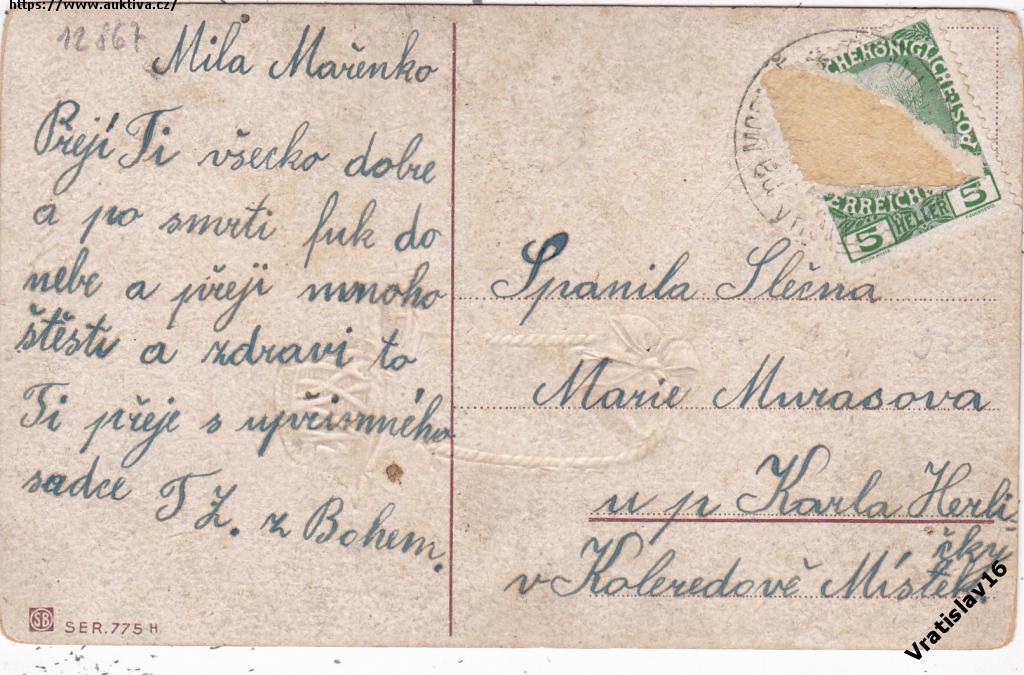 https://www.auktiva.cz/
12867
Mila Mařenko
Přeji Ti všecko dobre
a po smrti fuk do
nebe a přeji mnoho
štěsti a zdravi to
Ti přeje s upřimného
sadce T Z. z Bohem.
SB SER. 775 H
CHEKÖNIGLICHE
ERREICH
5 HELLER 5
Spanila Slečna
Marie Murasova
u p Karla Herli
čky
v Koleredově Místek.
Vratislav16